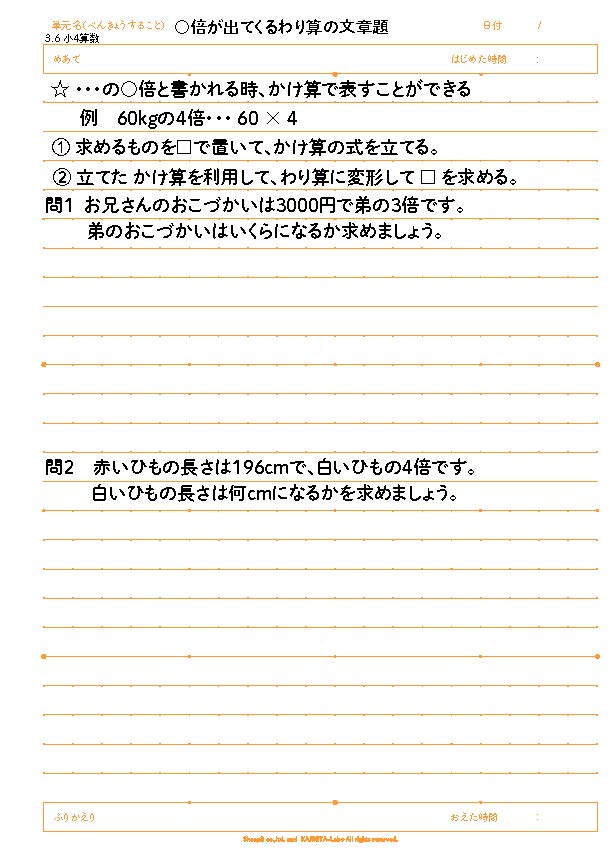 単元名(べんきょうすること) ○倍が出てくるわり算の文章題 日付 /
3.6 小4算数
めあて はじめた時間 :
☆ ・・・の○倍と書かれる時、かけ算で表すことができる
例 60kgの4倍・・・ 60 × 4
① 求めるものを□で置いて、かけ算の式を立てる。
② 立てた かけ算を利用して、わり算に変形して □ を求める。
問1 お兄さんのおこづかいは3000円で弟の3倍です。
弟のおこづかいはいくらになるか求めましょう。
問2 赤いひもの長さは196cmで、白いひもの4倍です。
白いひもの長さは何cmになるかを求めましょう。
ふりかえり おえた時間 :